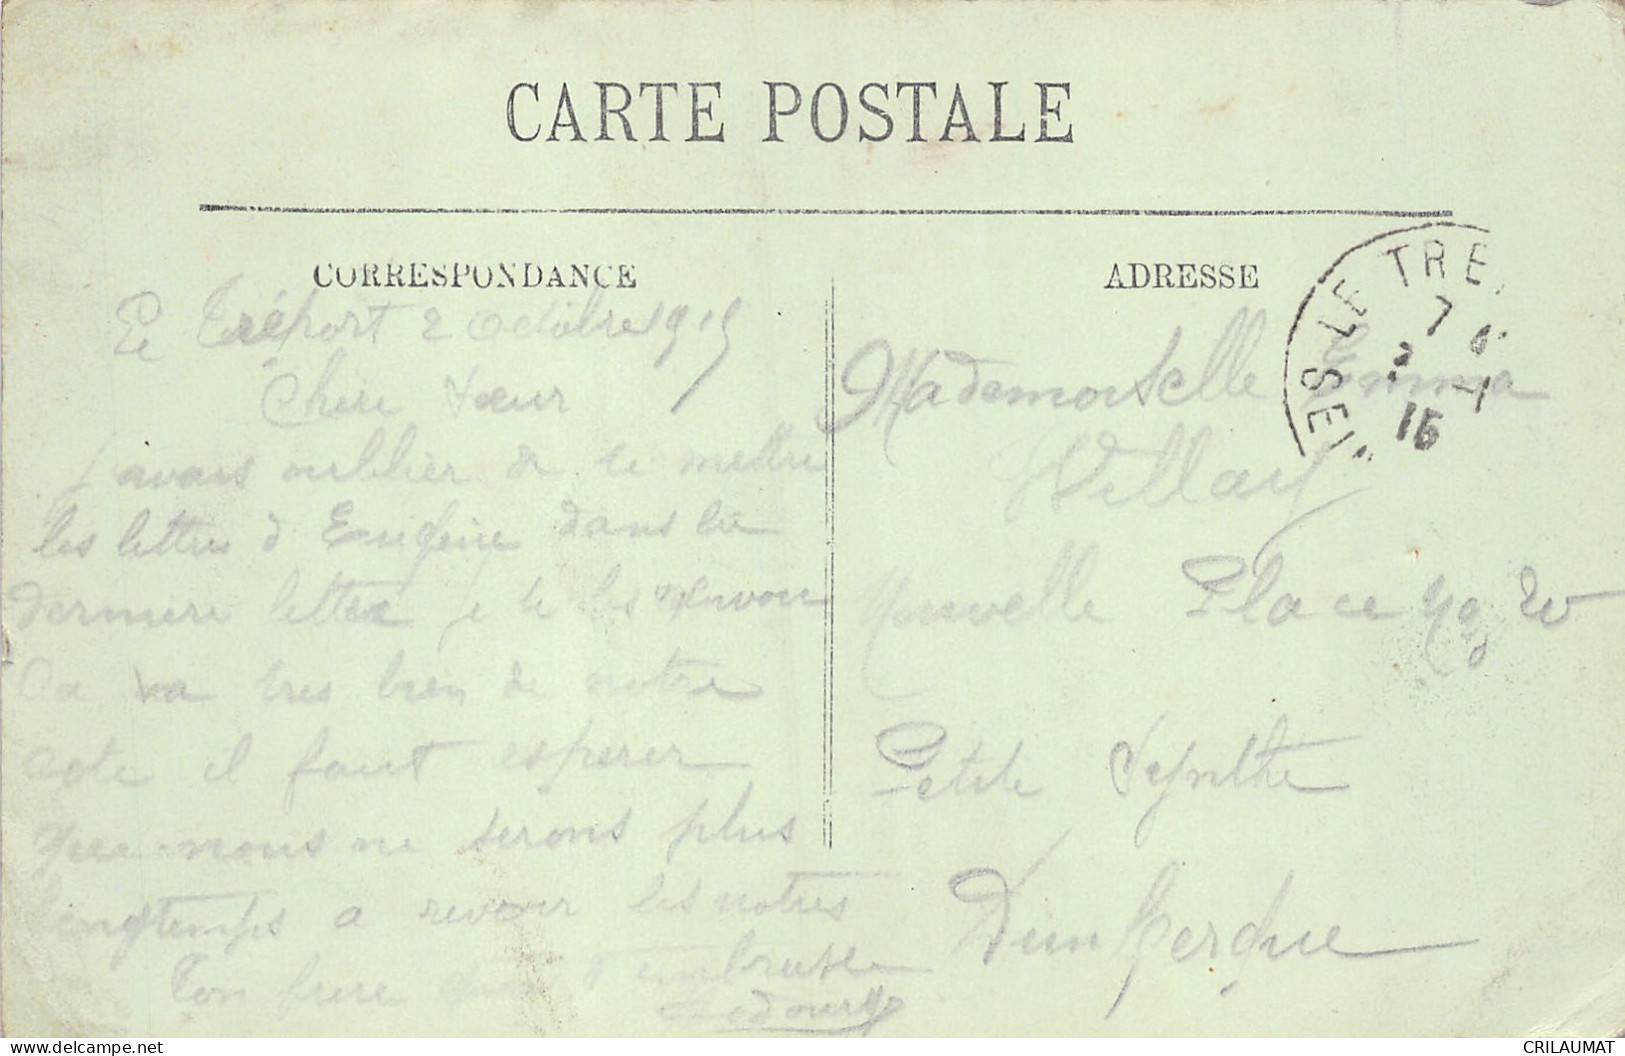 CARTE POSTALE
CORRESPONDANCE
Le Tréport 2 Octobre 1915
Chère Sœur
J avais oublier de te mettre
les lettres d Eugène dans la
dernière lettre je te les envoie
Ca va tres bien de notre
cote il faut esperer
que nous ne serons plus
longtemps a revoir les notres
Ton frere qui t'embrasse
ADRESSE
Mademoiselle Emma
Willay
Nouvelle Place No 20
Petite Synthe
Dunkerque
LE TRE
7
15
CRILAUMAT